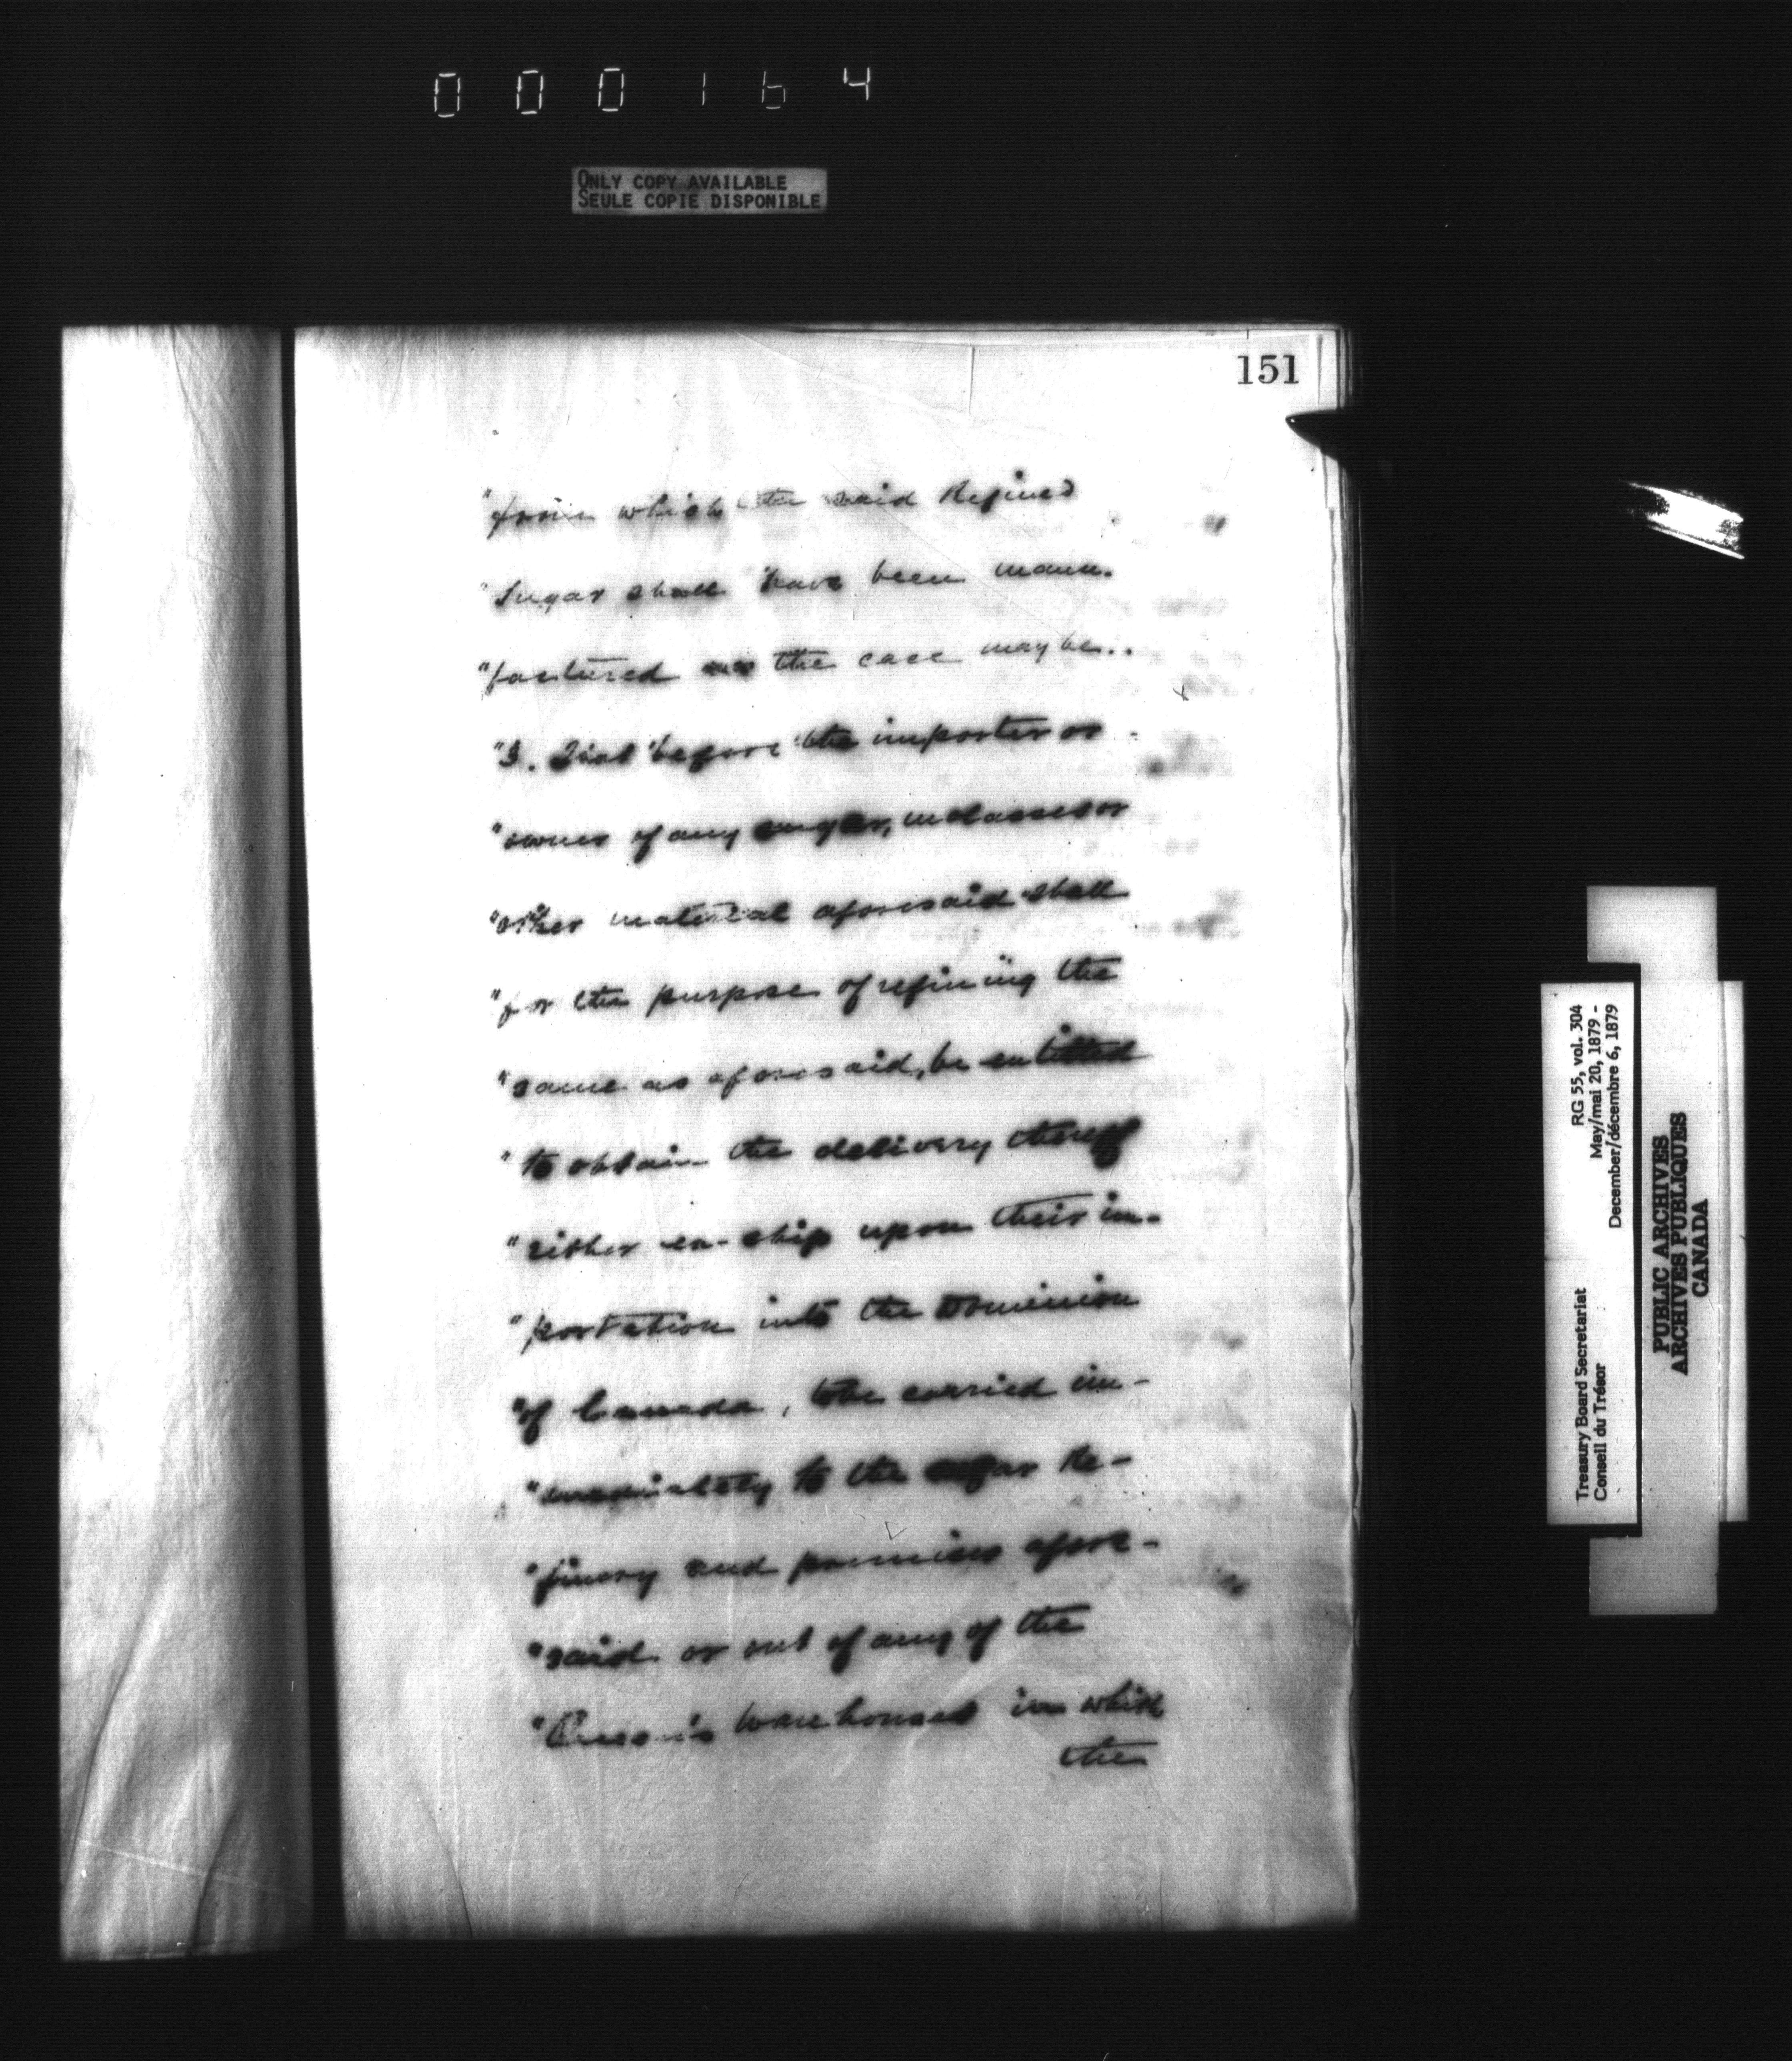 000164
ONLY COPY AVAILABLE
SEULE COPIE DISPONIBLE
151
"from which the said Refined
"Sugar shall have been manu-
"factured as the case may be..
"3. That before the importer or
"owner of any sugar, molasses or
"other material aforesaid shall
"for the purpose of refining the
"same as aforesaid, be entitled
"to obtain the delivery thereof
"either ex-ship upon their im-
"portation into the Dominion
"of Canada, to be carried im-
"mediately to the sugar Re-
"finery and premises afore-
"said or out of any of the
"Queen's warehouses in which
the
Treasury Board Secretariat RG 55, vol. 304
Conseil du Trésor May/mai 20, 1879 -
December/décembre 6, 1879
PUBLIC ARCHIVES
ARCHIVES PUBLIQUES
CANADA